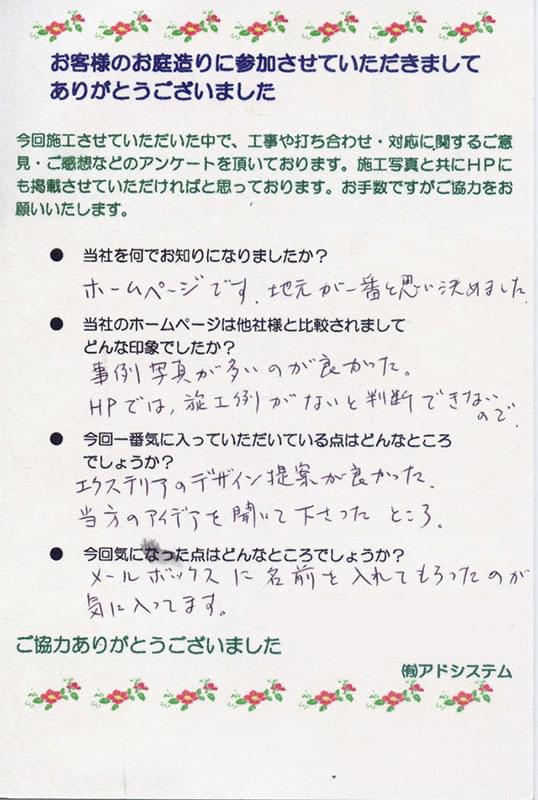 お客様のお庭造りに参加させていただきまして
ありがとうございました
今回施工させていただいた中で、工事や打ち合わせ・対応に関するご意
見・ご感想などのアンケートを頂いております。施工写真と共にＨＰに
も掲載させていただければと思っております。お手数ですがご協力をお
願いいたします。
● 当社を何でお知りになりましたか？
ホームページです。地元が一番と思い決めました
● 当社のホームページは他社様と比較されまして
どんな印象でしたか？
事例写真が多いのが良かった。
HPでは、施工例がないと判断できない
ので
● 今回一番気に入っていただいている点はどんなところ
でしょうか？
エクステリアのデザイン提案が良かった。
当方のアイデアを聞いて下さった ところ。
● 今回気になった点はどんなところでしょうか？
メールボックスに名前を入れてもらったのが
気に入ってます。
ご協力ありがとうございました
㈲アドシステム